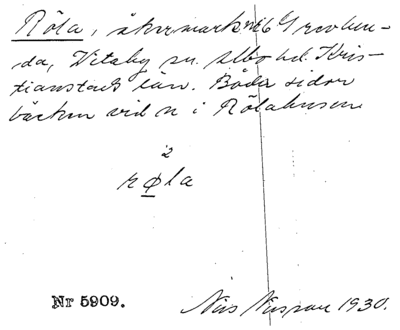 Röla, åkermark nr 6 Grevlun-
da, Vitaby sn. Albo hd. Kris-
tianstads län. Båda sidor
bäcken vid n i Rölahusen
2
røla
Nr 5909.
Nils 1930.